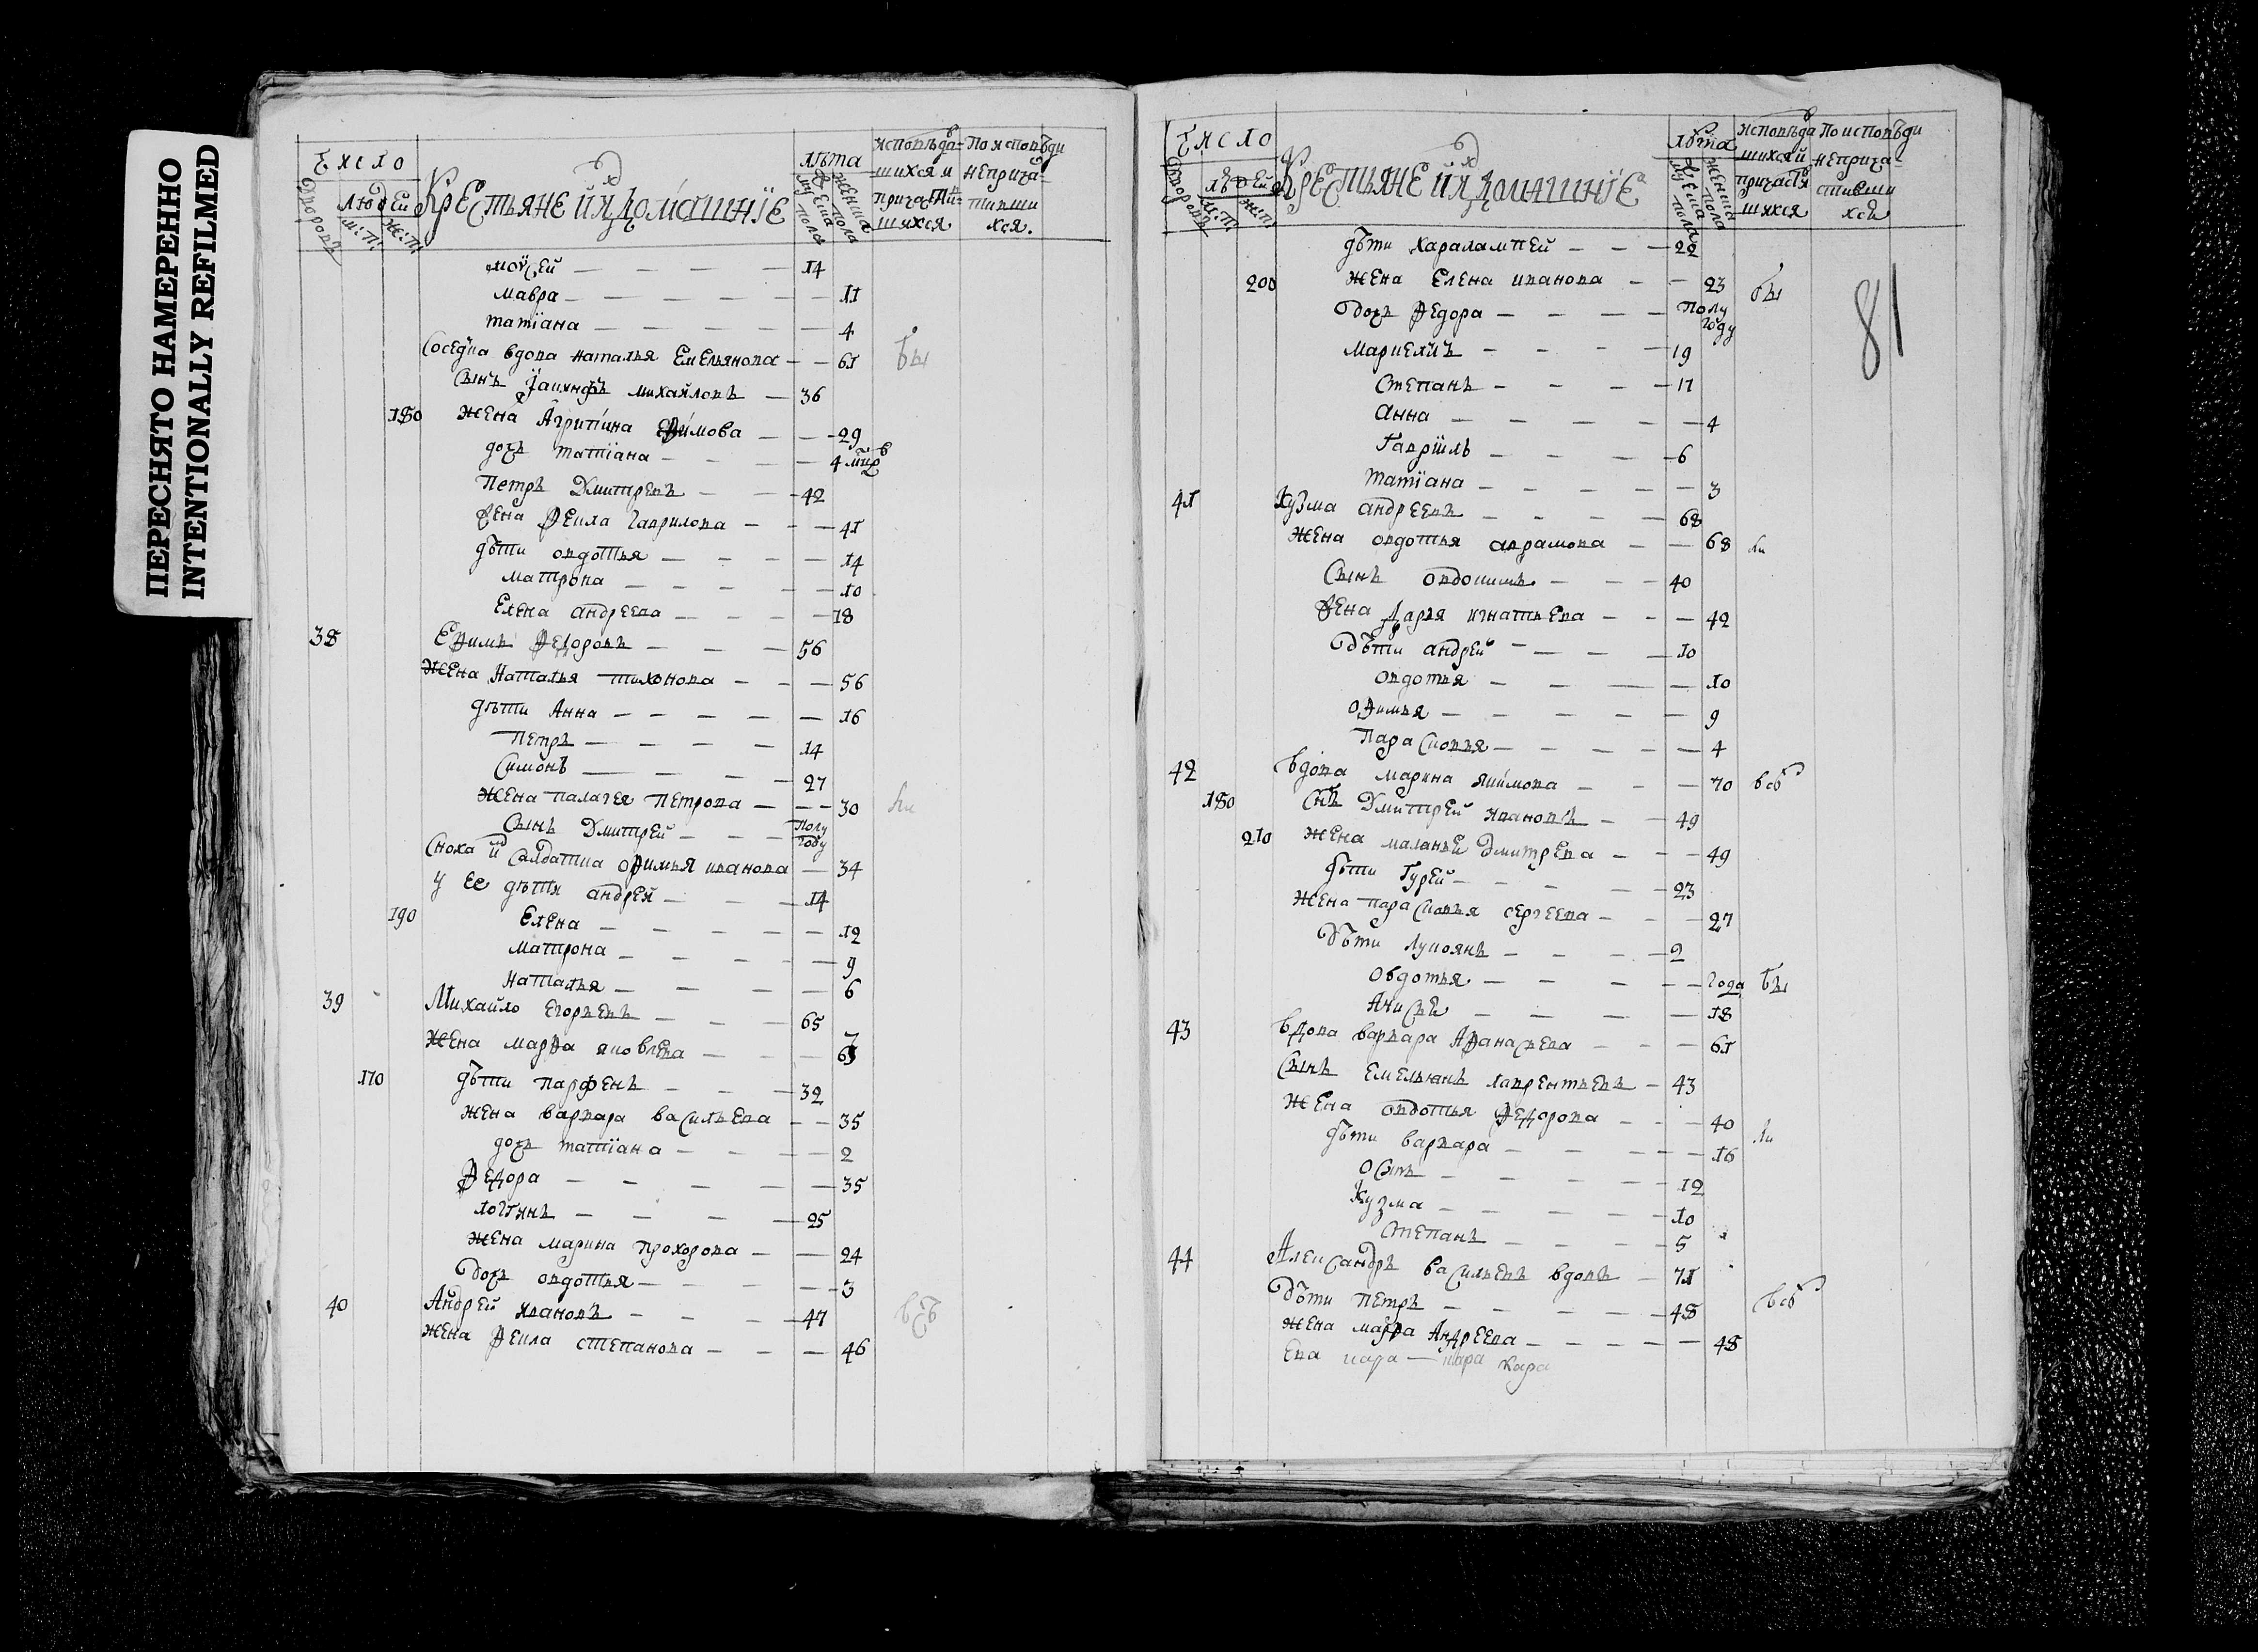 ПЕРЕСНЯТО НАМЕРЕННО
INTENTIONALLY REFILMED
Число
Дворовъ
Людей
м: п:
ж: п:
Крестьяне и ихъ домашніе
лѣта
мужеска пола
женска пола
исповѣда-
шихся и
причасти-
шихся
По исповѣди
неприча-
стивши
хся.
моѵсей — 14
мавра — 11
татїана — 4
Соседка вдова наталья Емельянова — 61 бы
сынъ Їакинфъ михайловъ — 36
180 жена Агрипина Ефимова — 29
дочь татїана — 4
Петръ Дмитревъ — 42
жена Фекла Гаврилова — 41
дѣти овдотья — 14
матрона — 10
Елена андреева — 18
38 Ефимъ Федоровъ — 56
жена Наталья тихонова — 56
дѣти Анна — 16
Петръ — 14
Симонъ — 27
жена палагея петрова — 30 ли
сынъ Дмитрей — полу году
Сноха солдатка офимья иванова — 34
у ее дѣти андрей — 14
190 Елена — 12
матрона — 9
Наталья — 6
39 Михайло Егорьевъ — 65
жена марфа яковлева — 63
170 дѣти парфенъ — 32
жена варвара васильева — 35
дочь татїана — 2
Федора — 35
логгинъ — 25
жена марина прохорова — 24
дочь овдотья — 3
40 Андрей ивановъ — 47
жена Фекла степанова — 46
Число
Дворовъ
людей
м: п:
ж: п:
Крестьяне и ихъ домашніе
лѣта
мужеска пола
женска пола
исповѣда
шихся и
причастив
шихся
По исповѣди
неприча-
стивши
хся
81
дѣти харалампей — 22
200 жена Елена иванова — 23 бы
дочь Федора — полу году
19
Степанъ — 17
анна — 4
Гаврїилъ — 6
татїана — 3
41 Кузма андреевъ — 68
жена овдотья аврамова — 68 ли
сынъ овдокимъ — 40
жена дарья игнатьева — 42
дѣти андрей — 10
овдотья — 10
офимья — 9
парасковья — 4
42 Вдова марина якимова — 70
180 снъ Дмитрей ивановъ — 49
210 жена маланья дмитрева — 49
дѣти Гурей — 23
жена парасковья сергеева — 27
дѣти лукоянъ — 2
Овдотья — года бы
18
43 вдова варвара Афанасьева — 61
сынъ Емельянъ лаврентьевъ — 43
жена овдотья Федорова — 40 ли
дѣти варвара — 16
осипъ — 12
Кузма — 10
степанъ — 5
44 Александръ васильевъ вдовъ — 71
дѣти петръ — 48
жена марфа Андреева — 48